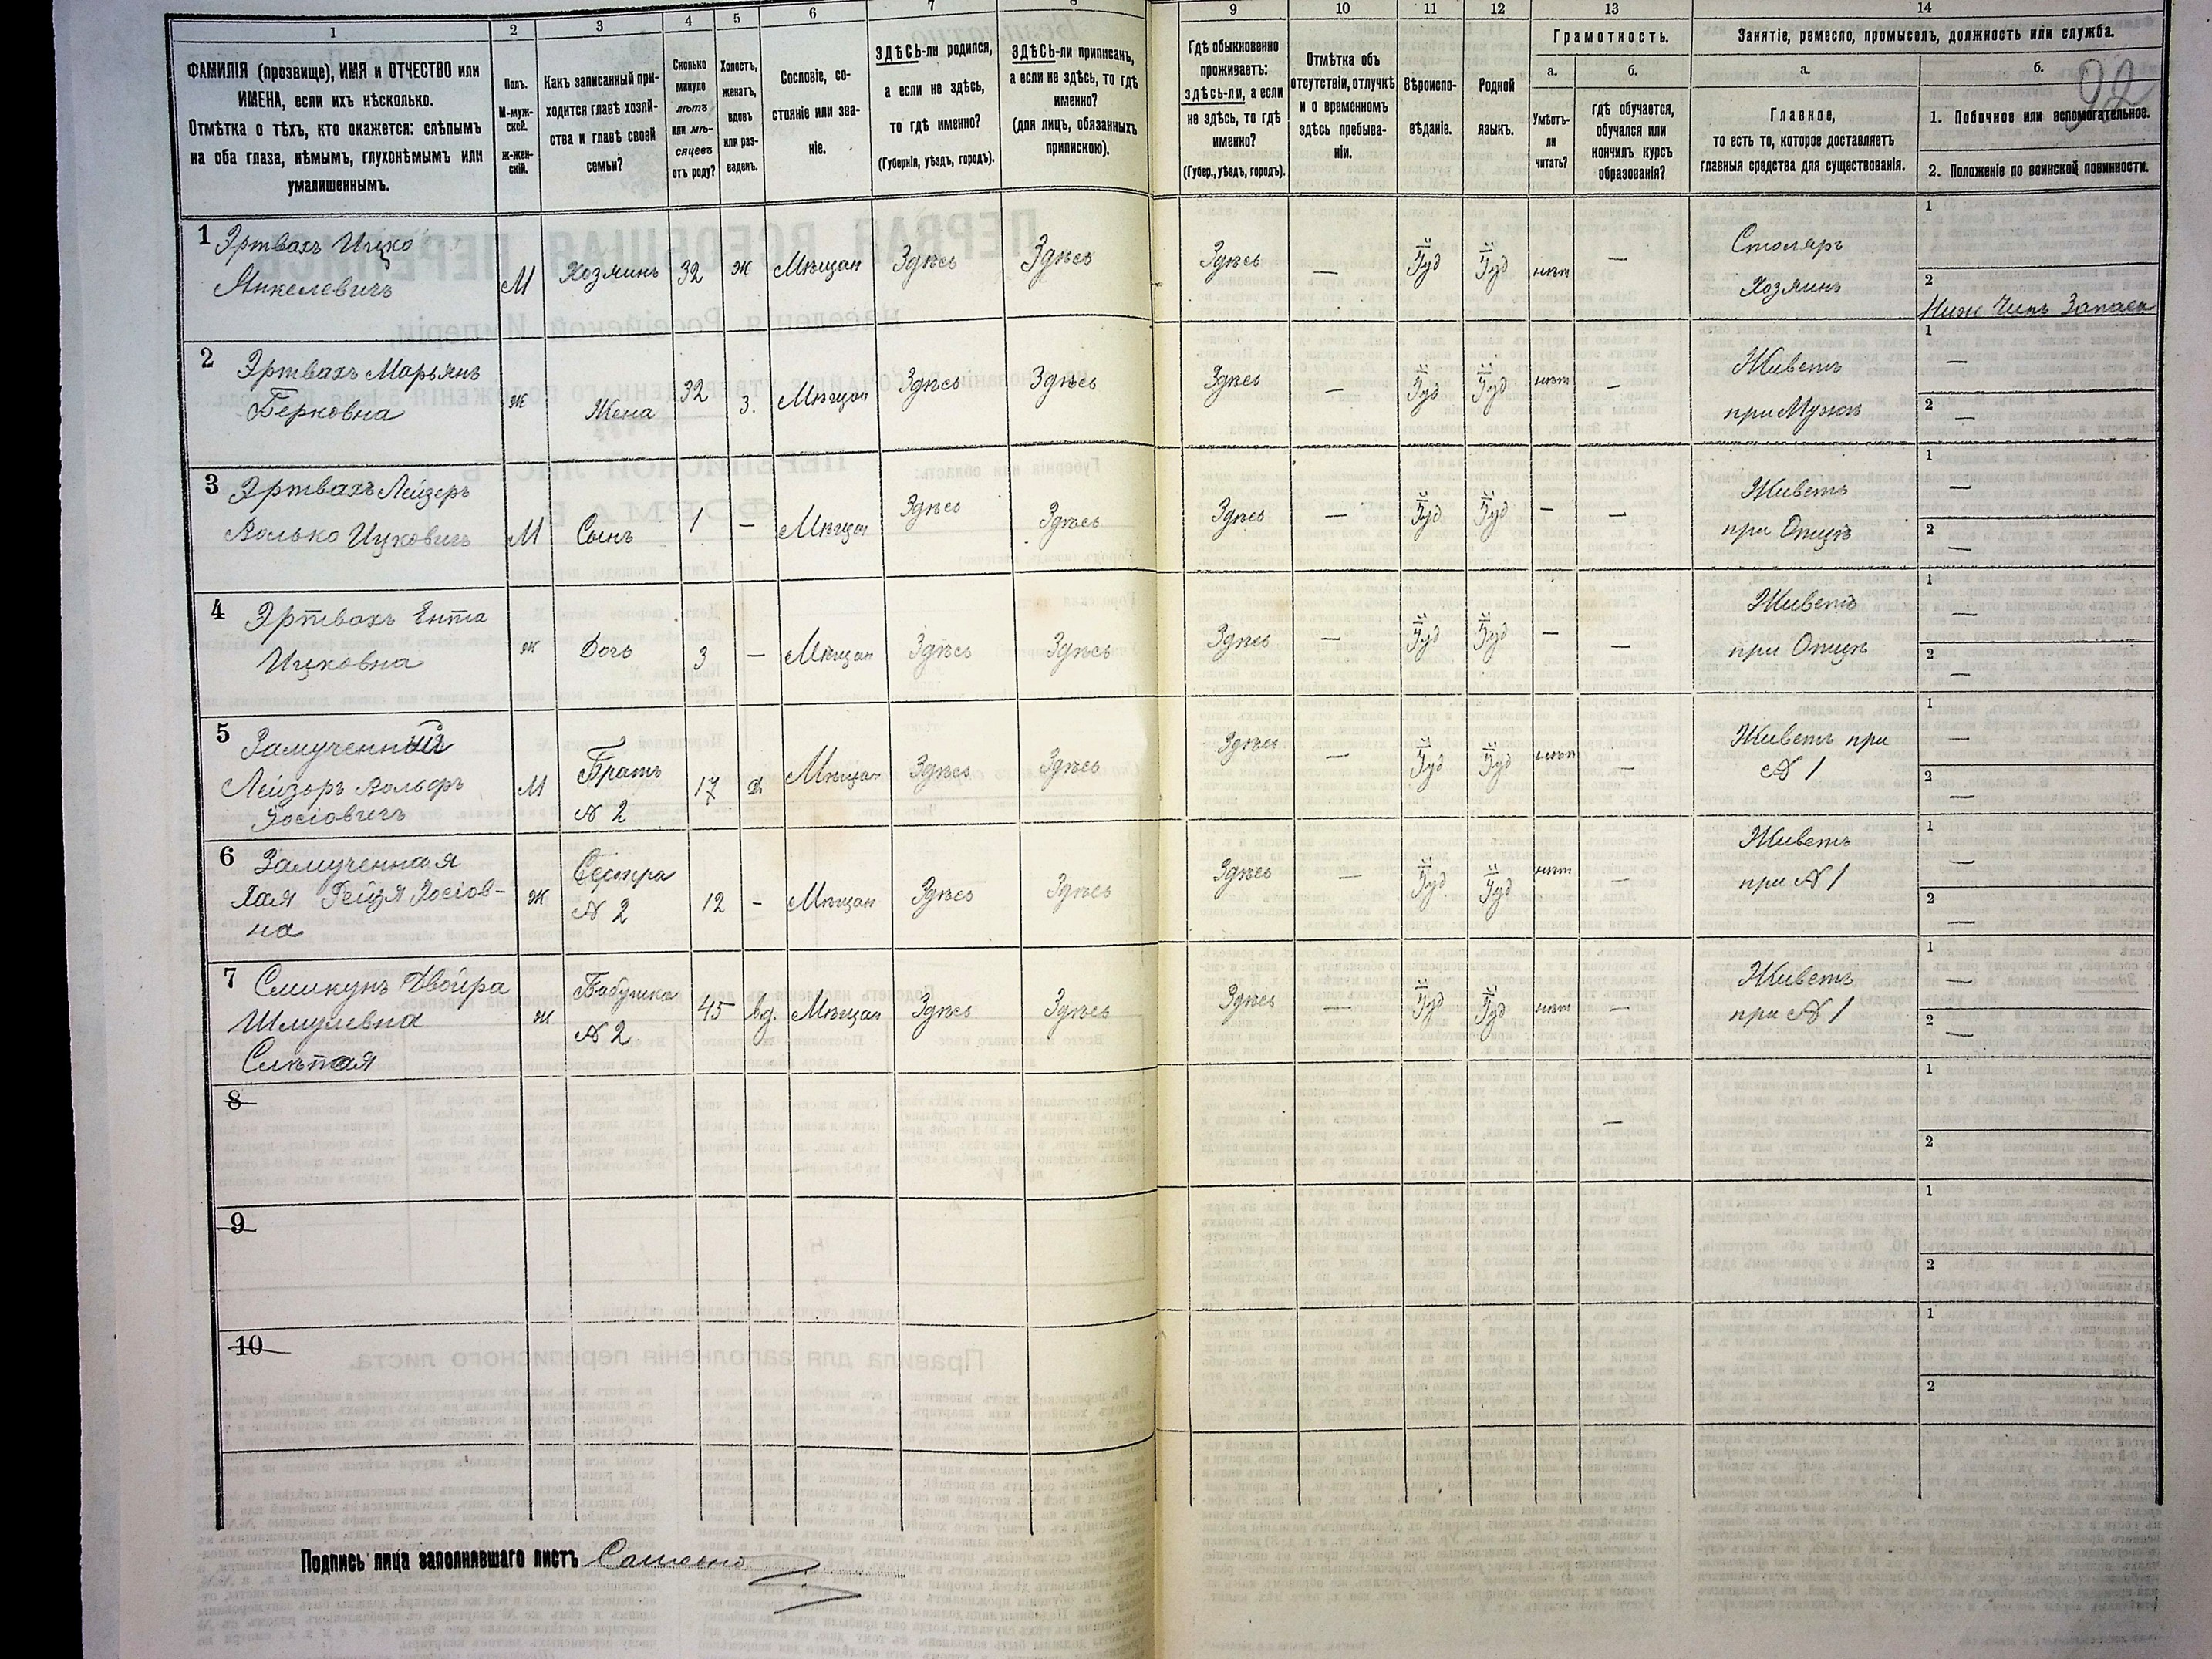 1 2 3 4 5 6 7 8 9 10 11 12 13 14
ФАМИЛІЯ (прозвище), ИМЯ и ОТЧЕСТВО или
ИМЕНА, если ихъ нѣсколько.
Отмѣтка о тѣхъ, кто окажется: слѣпымъ
на оба глаза, нѣмымъ, глухонѣмымъ или
умалишеннымъ.
Полъ.
М-муж-
ской.
Ж-жен-
скій.
Какъ записанный при-
ходится главѣ хозяй-
ства и главѣ своей
семьи?
Сколько
минуло
лѣтъ
или мѣ-
сяцевъ
отъ роду?
Холостъ,
женатъ,
вдовъ
или раз-
веденъ.
Сословіе, со-
стояніе или зва-
ніе.
ЗДѢСЬ-ли родился,
а если не здѣсь,
то гдѣ именно?
(Губернія, уѣздъ, городъ).
ЗДѢСЬ-ли приписанъ,
а если не здѣсь, то гдѣ
именно?
(для лицъ, обязанныхъ
припискою).
Гдѣ обыкновенно
проживаетъ:
здѣсь-ли, а если
не здѣсь, то гдѣ
именно?
(Губер., уѣздъ, городъ).
Отмѣтка объ
отсутствіи, отлучкѣ
и о временномъ
здѣсь пребыва-
ніи.
Вѣроиспо-
вѣданіе.
Родной
языкъ.
Грамотность.
а.
Умѣетъ-
ли
читать?
б.
гдѣ обучается,
обучался или
кончилъ курсъ
образованія?
Занятіе, ремесло, промыселъ, должность или служба.
а.
Главное,
то есть то, которое доставляетъ
главныя средства для существованія.
б.
92
1. Побочное или вспомогательное.
2. Положеніе по воинской повинности.
1 Эртвахъ Ицко
Янкелевичъ
М Хозяинъ 32 ж Мѣщан Здѣсь Здѣсь Здѣсь — Іуд Іуд нѣт —
Столяръ
Хозяинъ
1
2
Ниж Чинъ Запаса
2 Эртвахъ Марьянъ
Берковна
ж Жена 32 З. Мѣщан Здѣсь Здѣсь Здѣсь — Іуд Іуд нѣт —
Живетъ
при Мужѣ
1 —
2 —
3 Эртвахъ Лейзеръ
Волько Ицковичъ
М Сынъ 1 — Мѣщан Здѣсь Здѣсь Здѣсь — Іуд Іуд — —
Живетъ
при Отцѣ
1 —
2 —
4 Эртвахъ Ента
Ицковна
ж Дочь 3 — Мѣщан Здѣсь Здѣсь Здѣсь — Іуд Іуд — —
Живетъ
при Отцѣ
1 —
2 —
5 Замученный
Лейзоръ Вольфъ
Іосіовичъ
М Братъ
№ 2
17 Мѣщан Здѣсь Здѣсь Здѣсь — Іуд Іуд нѣт —
Живетъ при
№ 1
1 —
2 —
6 Замученная
Хая Рейзя Іосіов-
на
ж Сестра
№ 2
12 - Мѣщан Здѣсь Здѣсь Здѣсь — Іуд Іуд нѣт —
Живетъ
при № 1
1 —
2 —
7 Смикунъ Двойра
Шмулевна
Слѣпая
ж Бабушка
№ 2
45 вд. Мѣщан Здѣсь Здѣсь Здѣсь — Іуд Іуд нѣт —
Живетъ
при № 1
1 —
2 —
8 —
1
2
9
1
2
10
1
2
Подпись лица заполнявшаго листъ